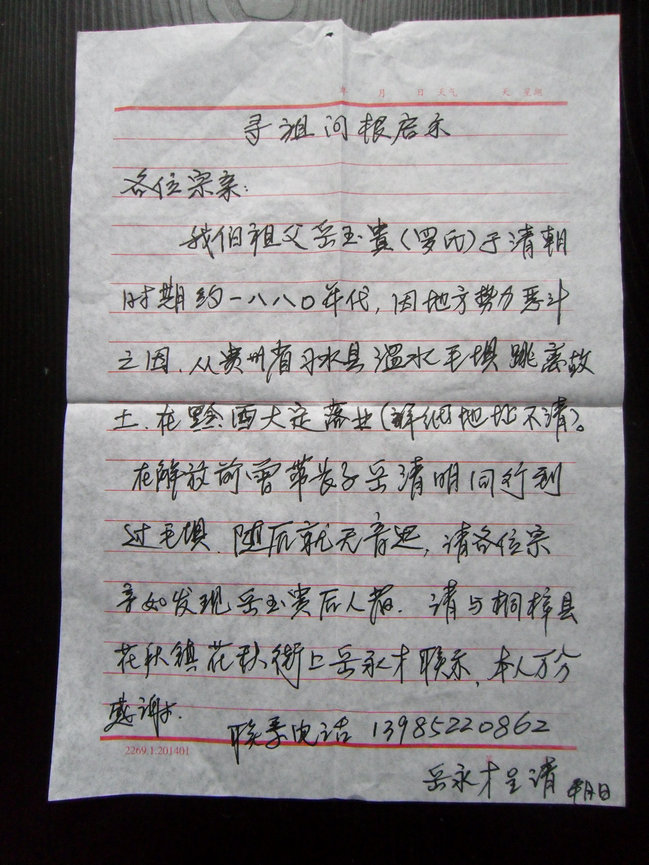 年 月 日 天气 天 星期
寻祖问根启示
各位宗亲:
我们祖父岳玉贵(罗氏)于清朝
时期约一八八〇年代,因地方势力恶斗
之因,从贵州省习水县温水毛坝跳离故
土,在黔西大定落业(详细地址不清)。
在解放前曾带长子岳清明同行到
过毛坝,随后就无音迅,请各位宗
亲如发现岳玉贵后人者,请与桐梓县
花秋镇花秋街上岳永才联系,本人万分
感谢。
联系电话 13985220862
2269.1.201401
岳永才呈请